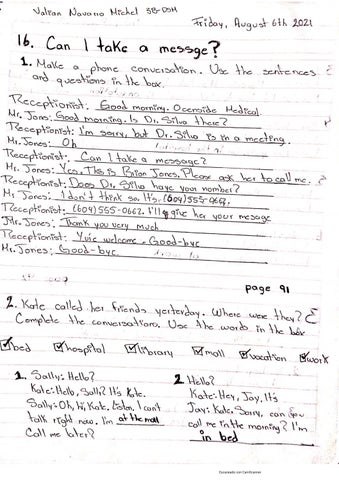 Valtran Navarro Michel 3B-DSM
Friday, August 6th 2021
16. Can I take a messge?
1. Make a phone conversation. Use the sentences
and questions in the box.
Receptionist: Good morning. Oceanside Medical.
Mr. Jones: Good morning. Is Dr. Silva there?
Receptionist: I'm sorry, but Dr. Silva is in a meeting.
Mr. Jones: Oh
Receptionist: Can I take a message?
Mr. Jones: Yes. This is Brian Jones. Please ask her to call me.
Receptionist: Does Dr. Silva have your number?
Mr. Jones: I don't think so. It's (604) 555-0662.
Receptionist: (604) 555-0662. I'll give her your mesage
Mr. Jones: Thank you very much
Receptionist: You're welcome. Good-bye
Mr. Jones: Good-bye.
page 91
2. Kate called her friends yesterday. Where were they?
Complete the conversations. Use the words in the box
bed hospital library mall vacation work
1. Sally: Hello? 2 Hello?
Kate: Hello, Sally? It's Kate. Kate: Hey, Jay, It's
Sally: Oh, hi, Kate. Listen, I can't Jay: Kate, Sorry, can you
talk right now. I'm at the mall call me in the morning? I'm
Call me later? in bed
Documento con CamScanner